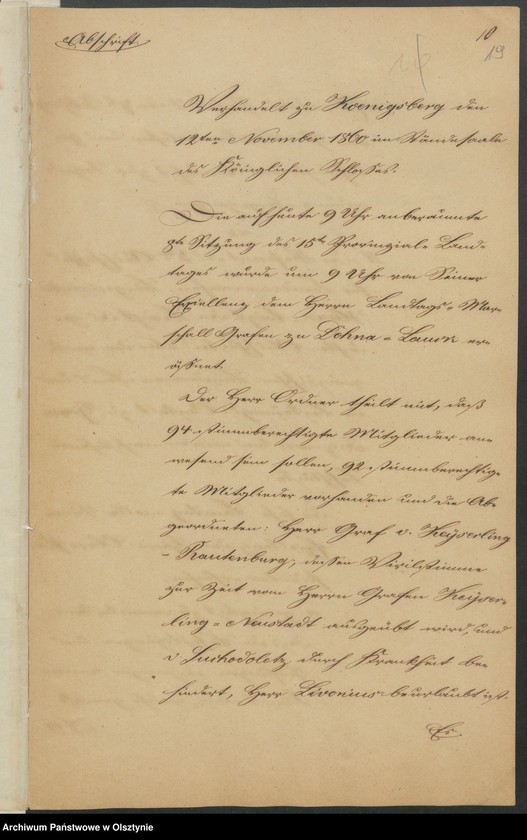 10
19
Abschrift.
Verhandelt zu Koenigsberg den
12ten November 1860 im Ständesaale
des Königlichen Schlosses.
Die auf heute 9 Uhr anberaumte
8te Sitzung des 15ten Provinzial-Land-
tages wurde um 9 Uhr von Seiner
Excellenz dem Herrn Landtags-Mar-
schall Grafen zu Dohna-Lauck er-
öffnet.
Der Herr Ordner theilt mit, daß
94 stimmberechtigte Mitglieder an-
wesend sein sollen, 92 stimmberechtig-
te Mitglieder vorhanden und die Ab-
geordneten: Herr Graf v. Keyserling
-Rautenburg, dessen Virilstimme
zur Zeit vom Herrn Grafen Keyser-
ling-Neustadt ausgeübt wird, und
v Suchodoletz durch Krankheit be-
hindert, Herr Livonius beurlaubt ist.
Es
Archiwum Państwowe w Olsztynie